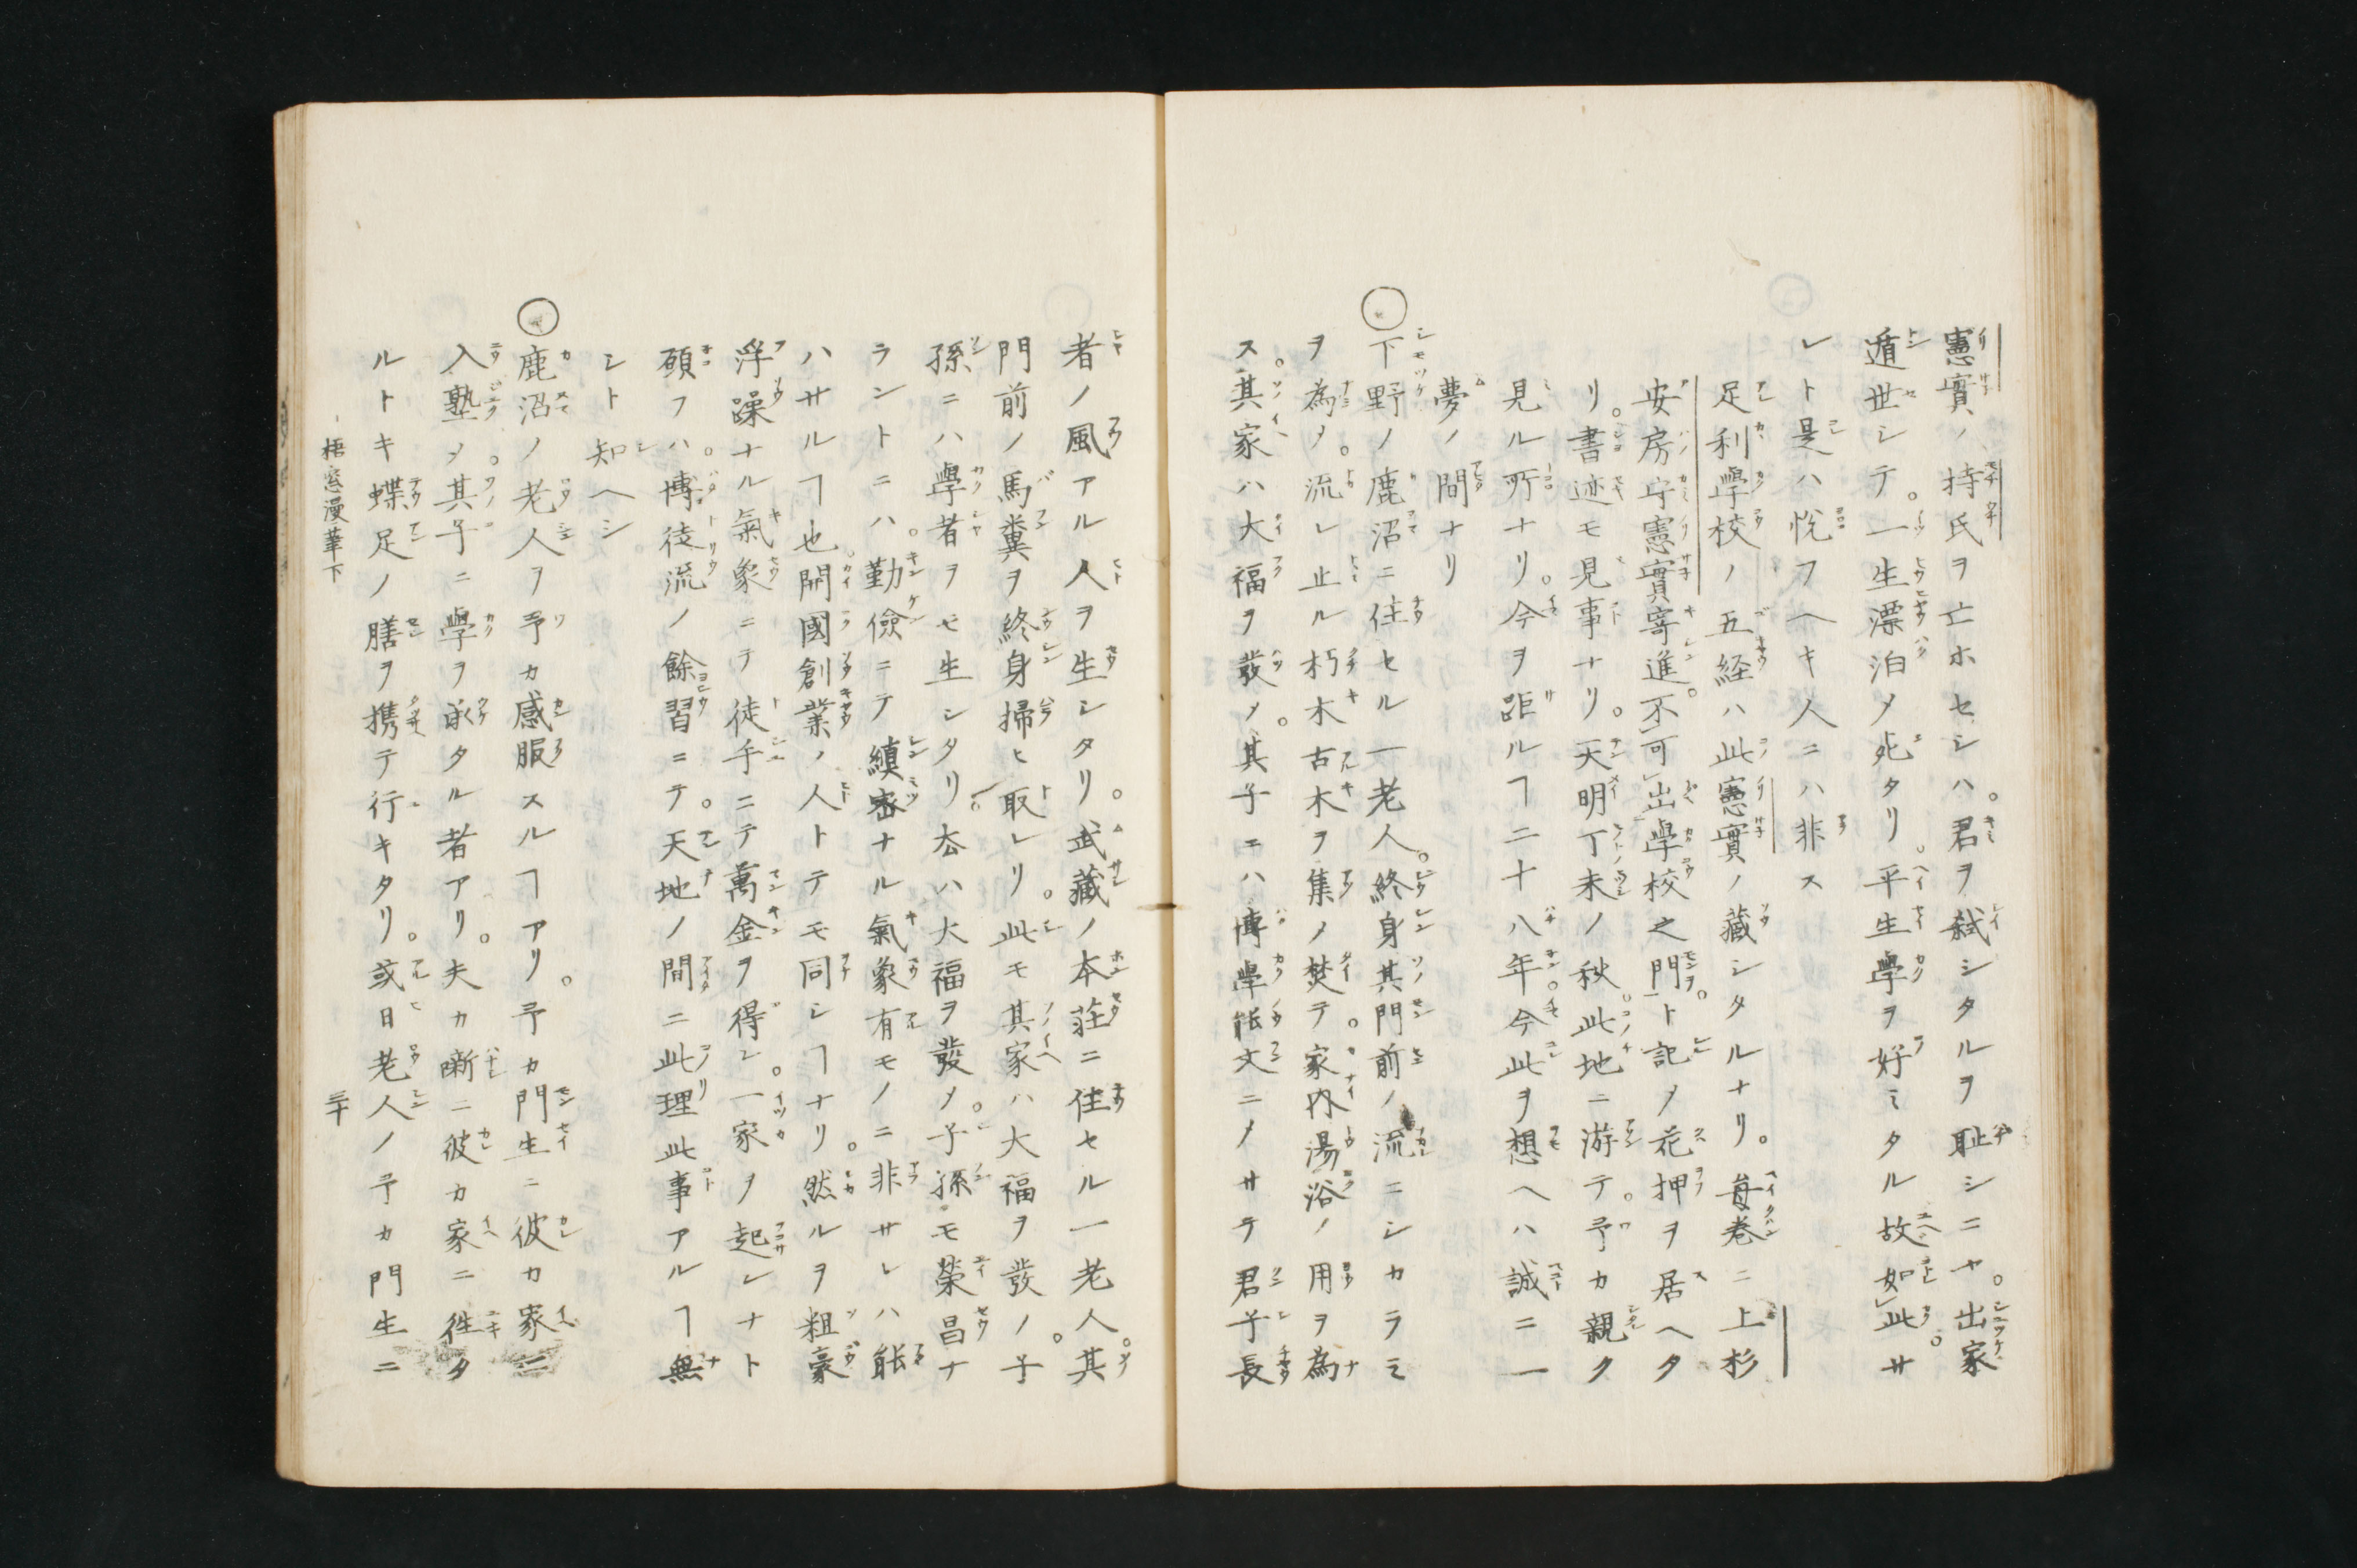 憲實ノ持氏ヲ亡ホセシハ。君ヲ弑シタルヲ耻シニヤ。出家
遁世シテ。一生漂泊〆死タリ。平生學ヲ好ミタル故如此。サ
レト是ハ悅フヘキ人ニハ非ス
足利學校ノ五経ハ此憲實ノ藏シタルナリ。每巻ニ上杉
安房守憲實寄進。不可出學校之門。ト記〆花押ヲ居ヘタ
リ。書迹モ見事ナリ。天明丁未ノ秋。此地ニ游テ。予カ親ク
見ル所ナリ。今ヲ距ルヿ二十八年。今此ヲ想ヘハ誠ニ一
夢ノ間ナリ
○下野ノ鹿沼ニ住セル一老人。終身其門前ノ流ニシカラミ
ヲ為〆。流レ止ル朽木古木ヲ集〆焚テ。家内湯浴ノ用ヲ為
ス。其家ハ大福ヲ發〆。其子ニハ博學能文ニ〆サテ君子長
者ノ風アル人ヲ生シタリ。武藏ノ本荘ニ住セル一老人。其
門前ノ馬糞ヲ終身掃ヒ取レリ。此モ其家ハ大福ヲ發〆。子
孫ニハ學者ヲモ生シタリ。大福ヲ發〆。子孫モ榮昌ナ
ラントニハ。勤儉ニテ縝密ナル氣象有モノニ非サレハ能
ハサルヿ也。開國創業ノ人トテモ同シヿナリ。然ルヲ粗豪
浮躁ナル氣象ニテ徒手ニテ萬金ヲ得レ。一家ヲ起レナト
願フハ。博徒流ノ餘習ニテ。天地ノ間ニ此理此事アルヿ無
シト知ヘシ。
○鹿沼ノ老人ヲ予カ感服スルヿアリ。予カ門生ニ彼カ家ニ
入塾〆。其子ニ學ヲ承タル者アリ。夫カ噺ニ彼カ家ニ徃タ
ルトキ蝶足ノ膳ヲ携テ行キタリ。或日老人ノ予カ門生ニ
梧窓漫筆下
三十